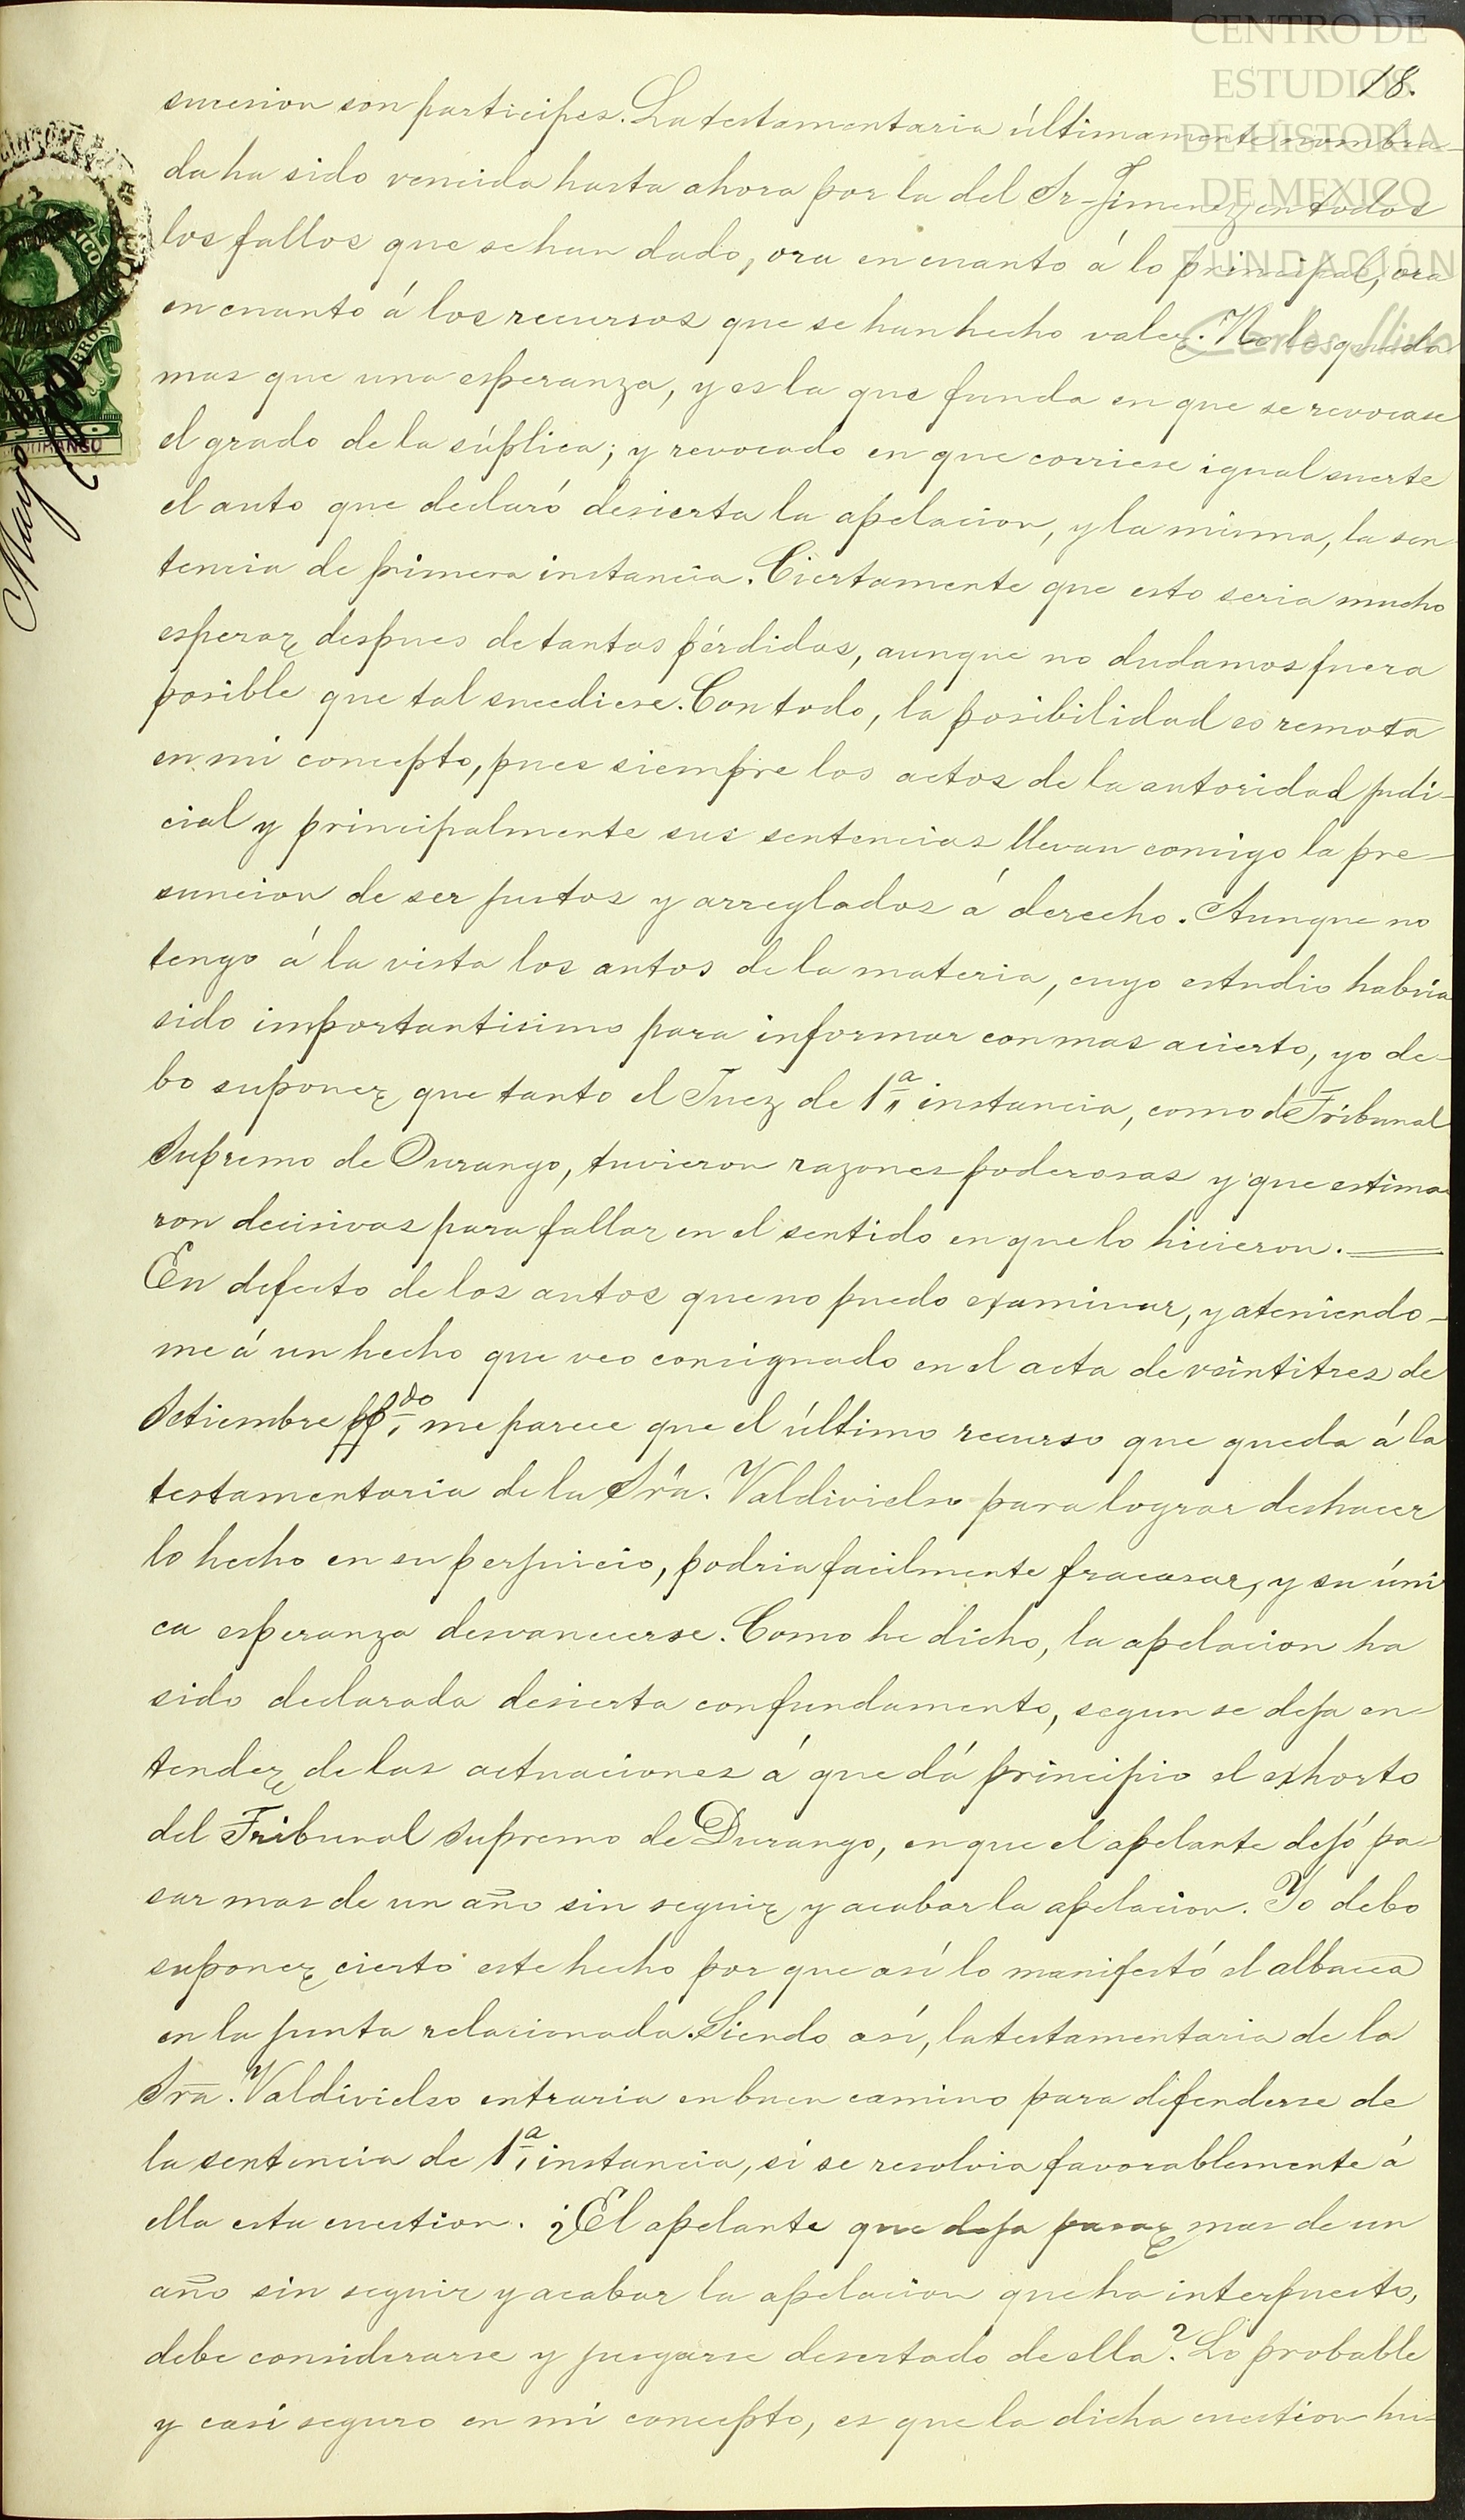 CENTRO DE
ESTUDIOS
DE HISTORIA
DE MEXICO
FUNDACIÓN
Carlos Slim
18.
sucesion son participes. La testamentaria últimamente nombra-
da ha sido vencida hasta ahora por la del Sr. Jimenez en todos
los fallos que se han dado, ora en cuanto á lo principal, ora
en cuanto á los recursos que se han hecho valer. No le queda
mas que una esperanza, y es la que funda en que se revocase
el grado de la súplica; y revocado en que corriese igual suerte
el auto que declaró desierta la apelacion, y la misma, la sen
tencia de primera instancia. Ciertamente que esto seria mucho
esperar despues de tantas pérdidas, aunque no dudamos fuera
posible que tal sucediese. Con todo, la posibilidad es remota
en mi concepto, pues siempre los actos de la autoridad judi-
cial y principalmente sus sentencias llevan consigo la pre-
suncion de ser justos y arreglados á derecho. Aunque no
tengo á la vista los autos de la materia, cuyo estudio habria
sido importantisimo para informar con mas acierto, yo de-
bo suponer que tanto el Juez de 1ª instancia, como el Tribunal
Supremo de Durango, tuvieron razones poderosas y que estima
ron decisivas para fallar en el sentido en que lo hicieron.
En defecto de los autos que no puedo examinar, y ateniendo-
me á un hecho que veo consignado en el acta de veintitres de
Setiembre ppdo. me parece que el último recurso que queda á la
testamentaria de la Sra. Valdivielso para lograr deshacer
lo hecho en su perjuicio, podria facilmente fracasar, y su úni
ca esperanza desvanecerse. Como he dicho, la apelacion ha
sido declarada desierta con fundamento, segun se deja en-
tender de las actuaciones á que dá principio el exhorto
del Tribunal Supremo de Durango, en que el apelante dejó pa-
sar mas de un año sin seguir y acabar la apelacion. Yo debo
suponer cierto este hecho por que así lo manifestó el albacea
en la junta relacionada. Siendo así, la testamentaria de la
Sra. Valdivielso entraria en buen camino para difenderse de
la sentencia de 1ª instancia, si se resolvia favorablemente á
ella esta cuestion. ¿El apelante que deja pasar mas de un
año sin seguir y acabar la apelacion que ha interpuesto,
debe considerarse y juzgarse desertado de ella? Lo probable
y casi seguro en mi concepto, es que la dicha cuestion hu-
Mayo